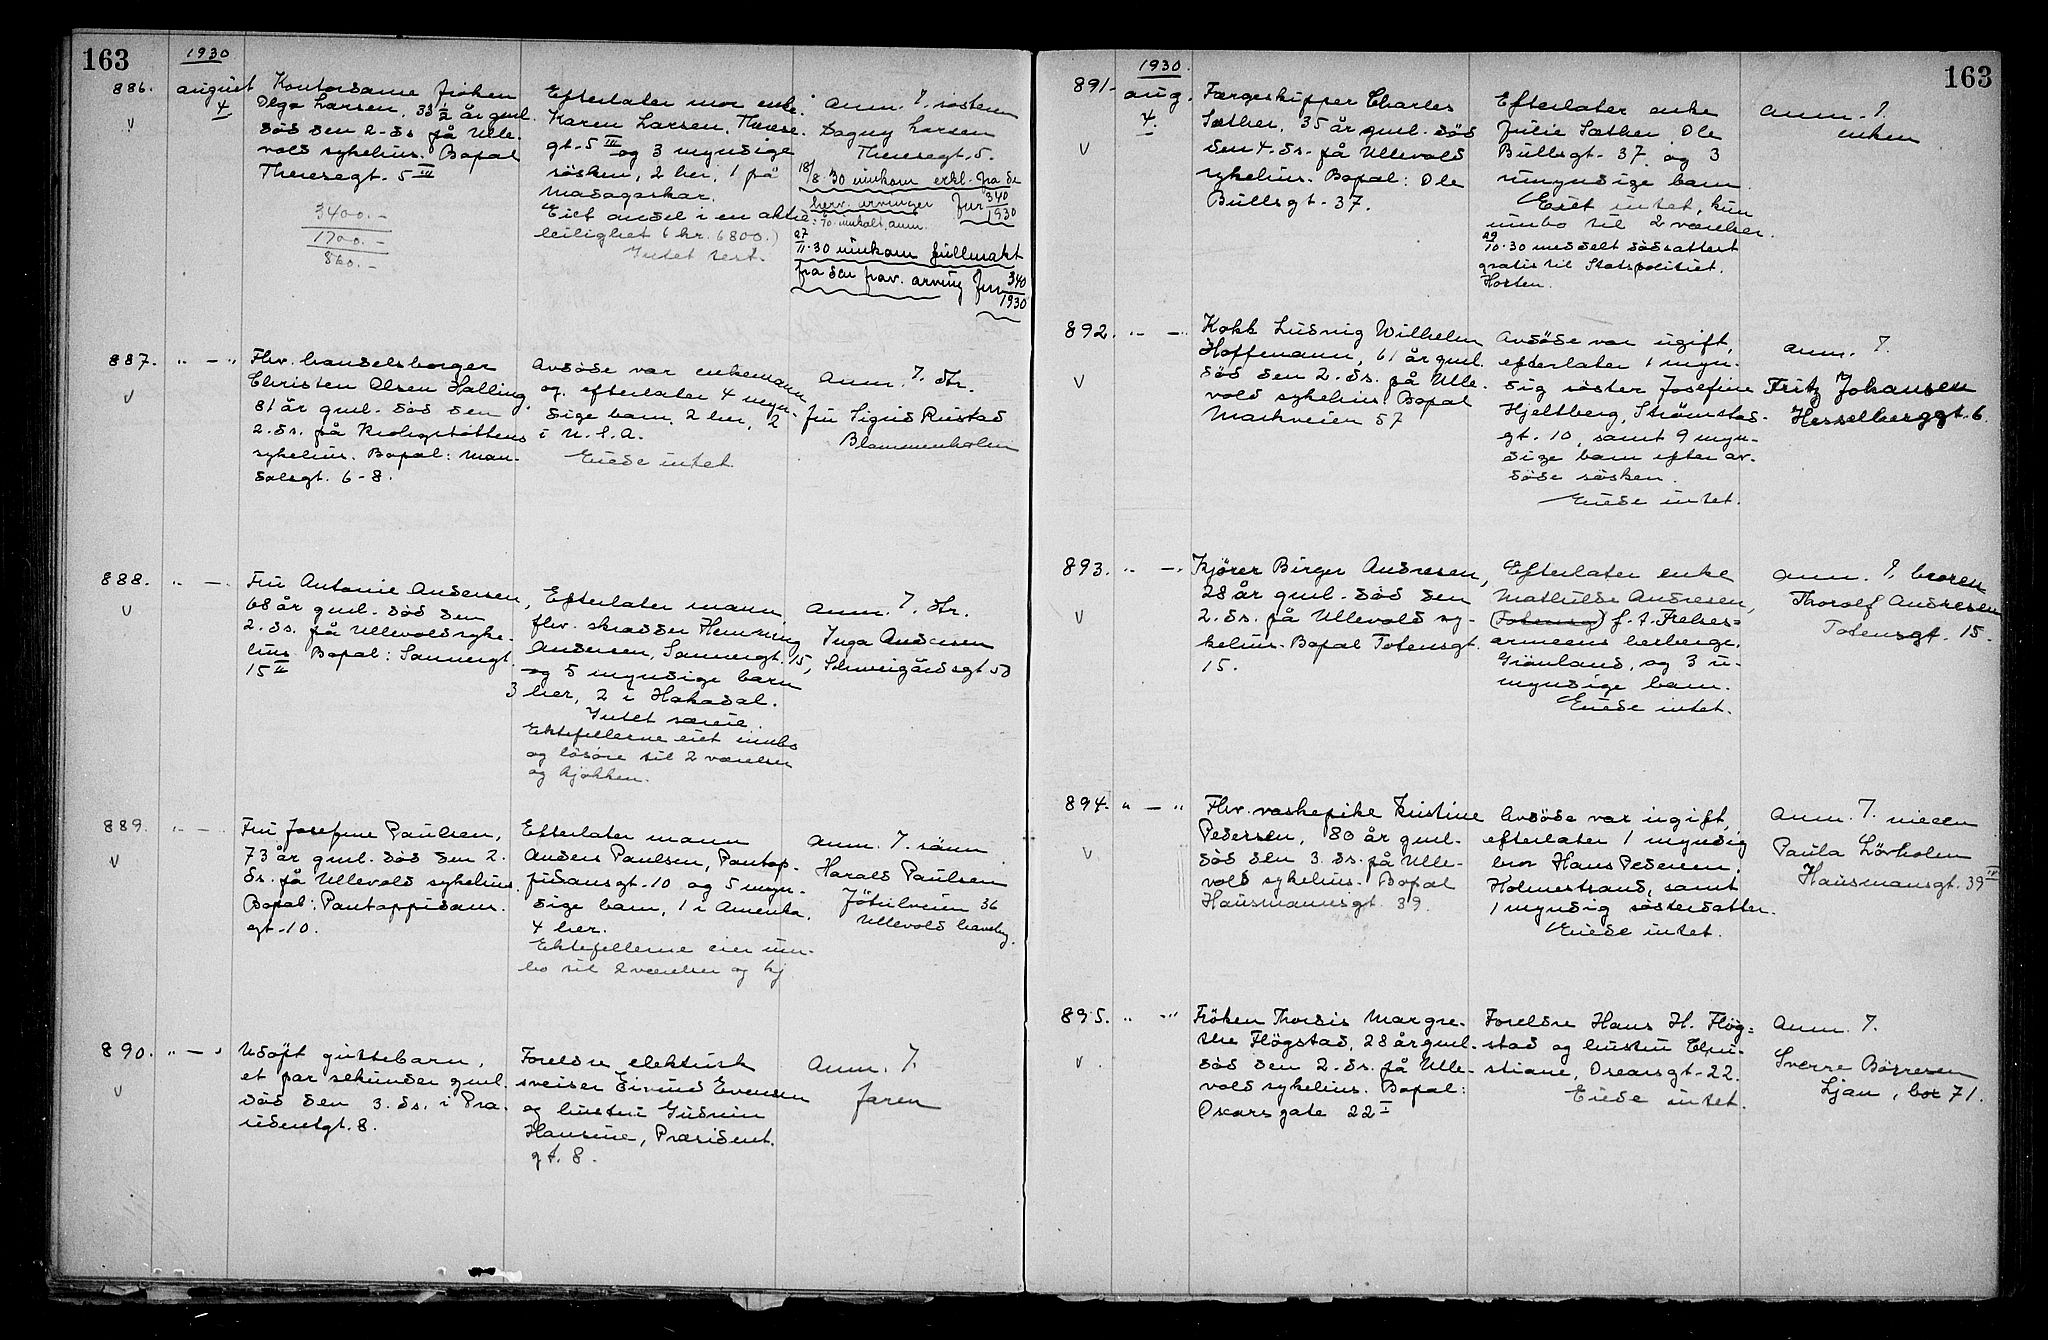 163
1930
886.
august
4
Kontordame frøken
Olga Larsen, 33½ år gml.
död den 2. ds på Ulle-
vold sykehus. Bopæl
Theresegt. 5 III
3400.-
1700.-
860.-
Efterlater mor enke
Karen Larsen, There-
gt. 5 III og 3 myndige
søsken, 2 her, 1 på
Madagaskar.
Eiet andel i en aktie-
leilighet 6 kr. 6800.)
Intet test.
Anm. 7. søsteren
Dagny Larsen
Theresegt. 5.
18/8.30 innkom erkl. fra de
herv. arvinger Jnr 340/1930
27/11.30 innkom fullmakt
fra den frav. arving Jnr 340/1930
887. " — "
Fhv. handelsborger
Christen Olsen Halling
81 år gml. död den
2. ds. på Krohgstøttens
sykehus. Bopal: Man-
dalsgt. 6-8.
Avdöde var enkemann
og efterlater 4 myn-
dige barn, 2 her, 2
i U.S.A.
Eiede intet
Anm. 7. dtr.
fru Sigrid Rustad
Blommenholm
888. " —
Fru Antonie Andersen,
68 år gml. död den
2. ds. på Ullevold syke-
hus Bopal: Sannergt.
15 II
Efterlater mann
fhv. skredder Henning
Andersen, Sannergt. 15,
og 5 myndige barn
3 her, 2 i Hakadal.
Intet særeie.
Ektefellerne eiet innbo
og løsöre til 2 værelser
og kjøkken.
Anm. 7. dtr.
Inga Andersen
Schweigårdsgt 50
889. " —
Fru Josefine Paulsen,
73 år gml. död den 2.
ds. på Ullevold sykehus.
Bopal: Pantappidams.
gt. 10.
Efterlater mann
Anders Paulsen, Pantap-
pidamsgt. 10 og 5 myn-
dige barn, 1 i Amerika,
4 her.
Ektefellerne eier inn-
bo til 2 værelser og kj
Anm. 7. sönn
Harald Paulsen
Jötulveien 36
Ullevold haveby.
890. " — "
Udöpt guttebarn,
et par sekunder gml.
död den 3. ds. i Præ-
sidentgt. 8.
Foreldre elektrisk
sveiser Eivind Evensen
og hustru Gudrun
Hansine, Præsident.
gt. 8.
Anm. 7.
faren
163
1930.
891.
aug.
4.
Færgeskipper Charles
Sæther, 35 år gml. död
den 4. ds. på Ullevold
sykehus. Bopal: Ole
Bullsgt. 37.
Efterlater enke
Julie Sæther Ole
Bullsgt. 37 og 3
umyndige barn.
Eiet intet, kun
innbo til 2 værelser.
29/10.30 meddelt dödsattest
gratis til Statspolitiet.
Horten.
Anm. 7.
enken
892. " — "
Kokk Ludvig Wilhelm
Hoffmann, 61 år gml.
död den 2. ds. på Ulle-
vold sykehus Bopal
Markveien 57
Avdöde var ugift,
efterlater 1 myn-
dig søster Josefine
Hjeltberg, Strømstad-
gt. 10, samt 9 myn-
dige barn efter av-
döde søsken.
Eiede intet.
Anm. 7.
Fritz Johansen
Hesselberggt. 6.
893. " — "
Kjører Birger Andresen,
28 år gml. död den
2. ds. på Ullevold sy-
kehus. Bopal Totensgt.
15.
Efterlater enke
Mathilde Andresen,
(Totensg) f. t. Frelses=
armeens herberge.
Grønland, og 3 u-
myndige barn.
Eiede intet.
Anm. 7. broren
Thoralf Andresen
Totensgt. 15.
894. " — "
Fhv. vaskepike Kristine
Pedersen, 80 år gml.
död den 3. ds. på Ulle-
vold sykehus. Bopal
Hausmannsgt. 39.
Avdöde var ugift,
efterlater 1 myndig
bror Hans Pedersen,
Holmestrand, samt
1 myndig søsterdatter.
Eiede intet.
Anm. 7. niecen
Paula Lörholm
Hausmansgt. 39 IV
895. " — "
Fröken Thordis Margre-
the Flögstad, 28 år gml.
död den 2. ds. på Ulle-
vold sykehus. Bopal:
Oscarsgate 22 I
Foreldre Hans H. Flög=
stad og hustru Chri-
stiane, Oscarsgt. 22.
Eiede intet.
Anm. 7.
Sverre Börresen
Ljan, box 71.